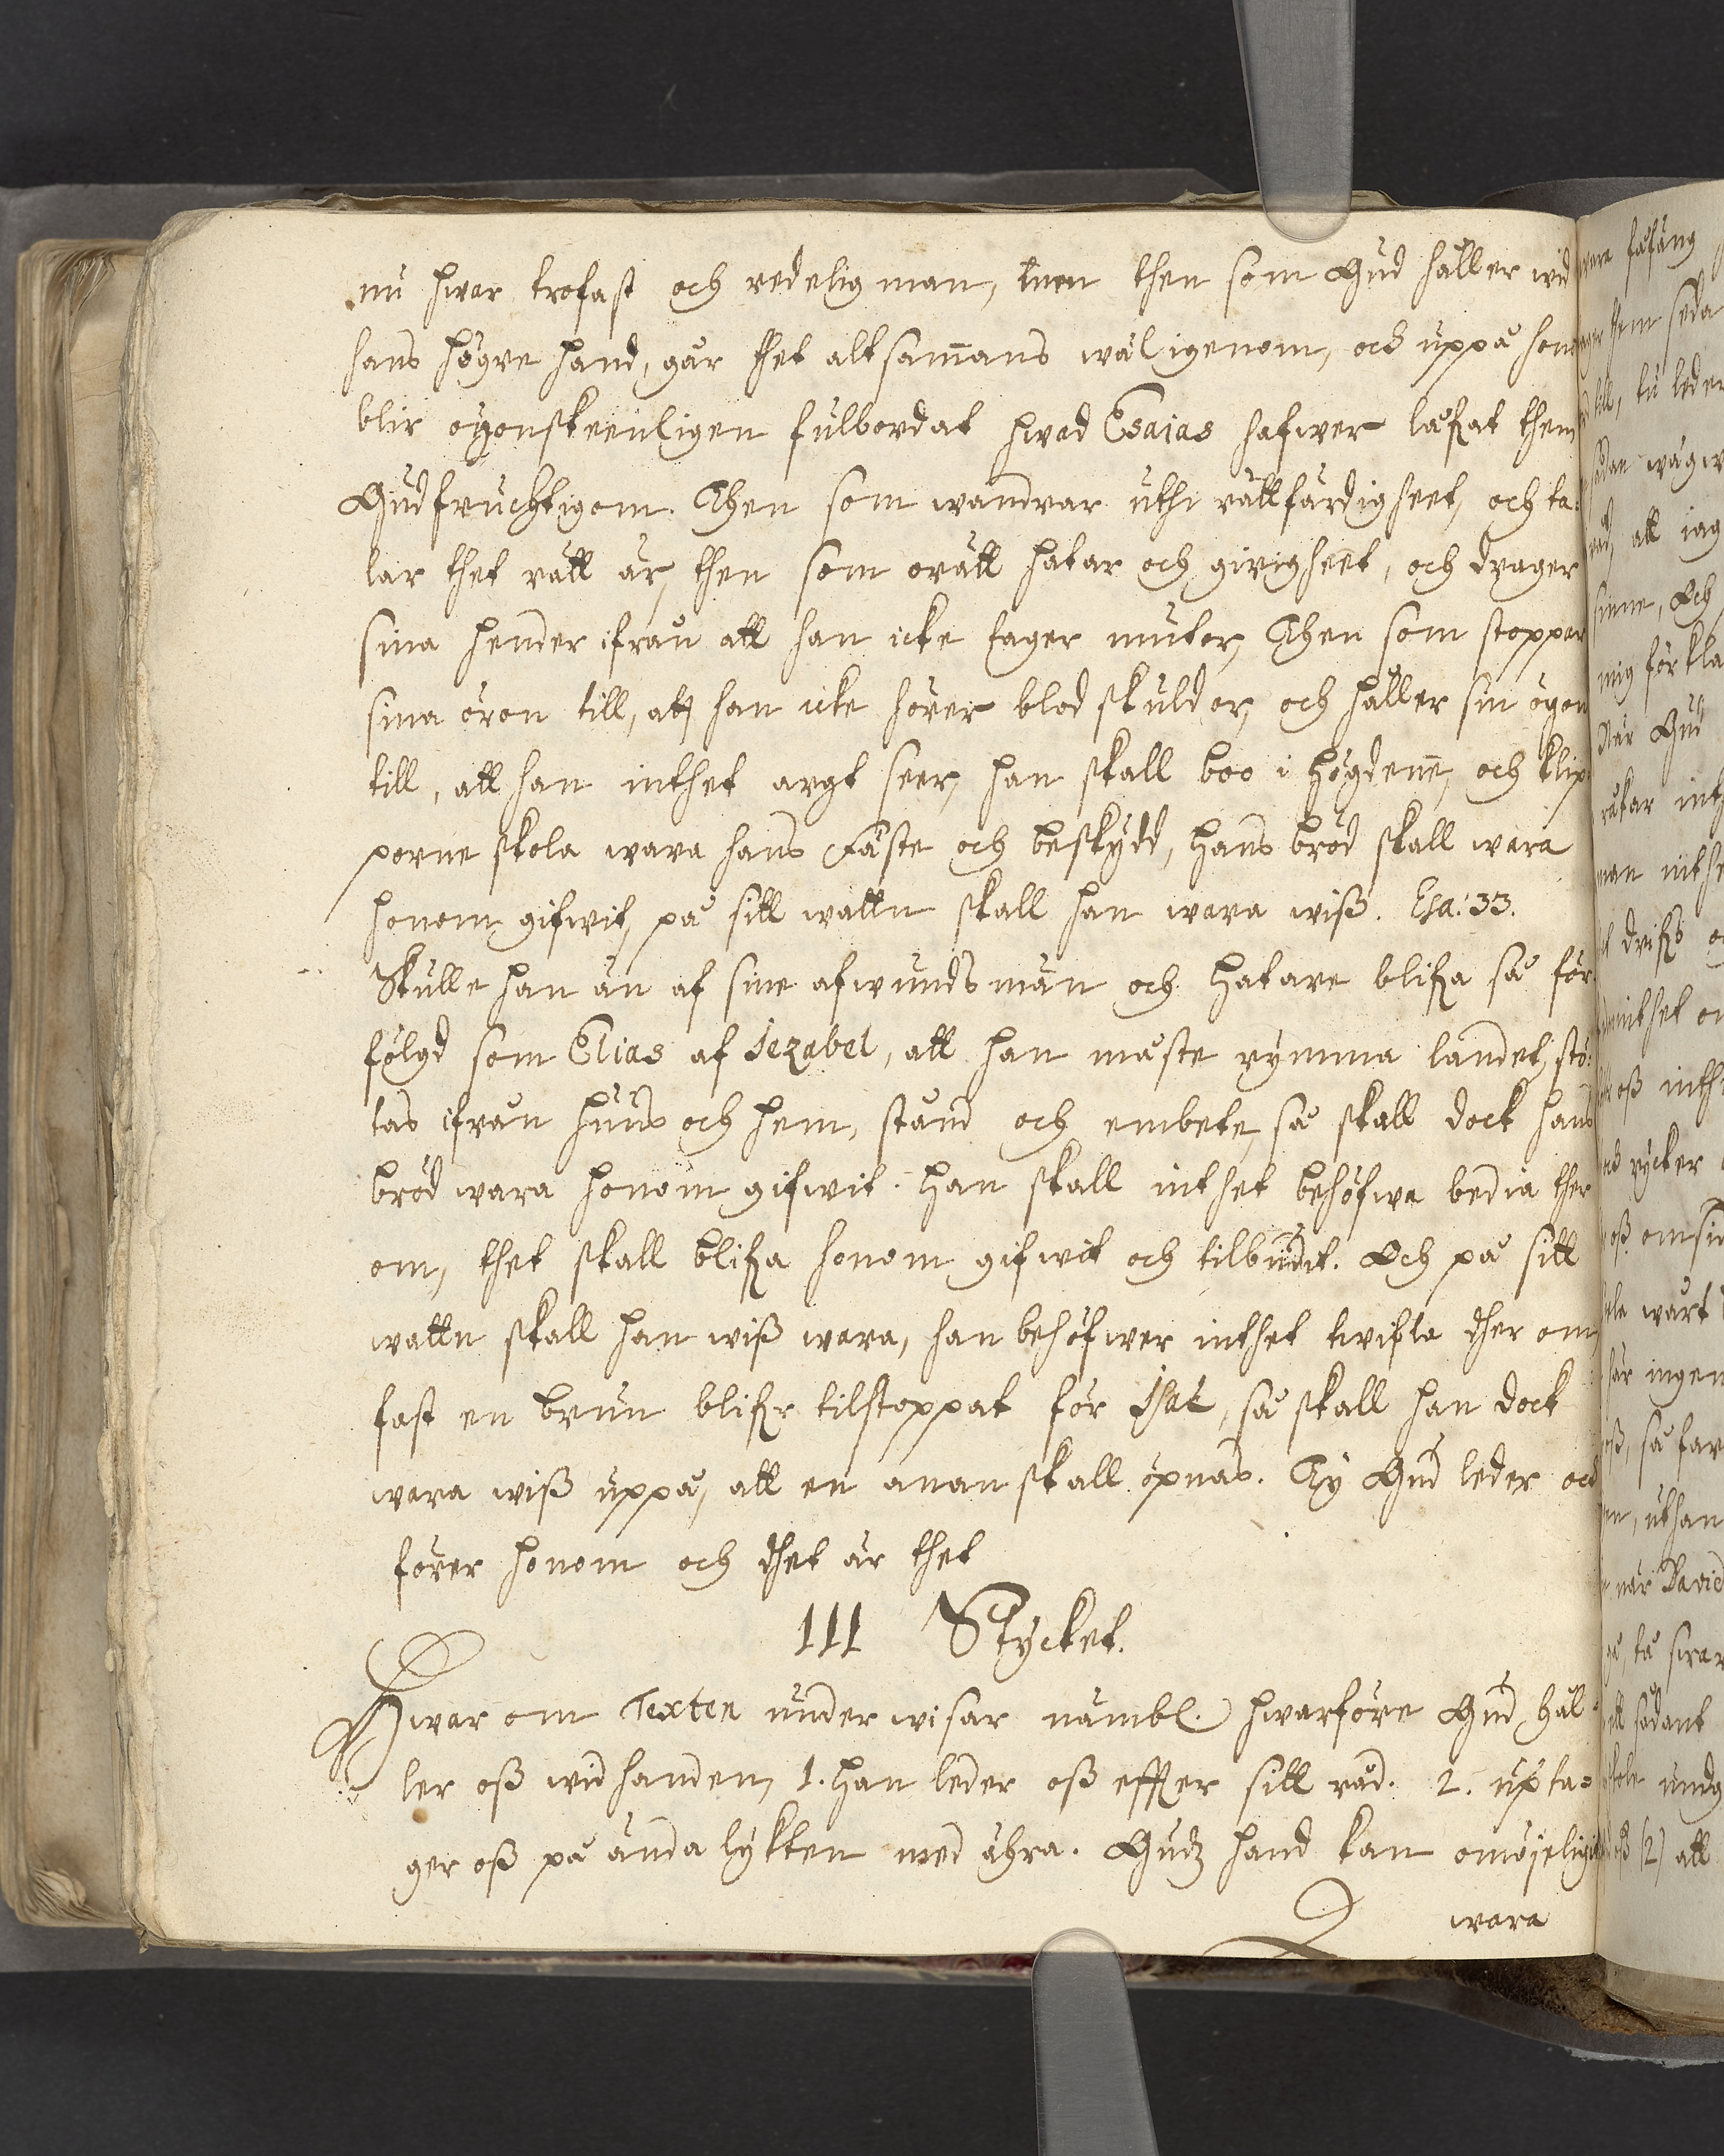 nu hwar trofast och redelig man, men then som Gud håller wid
hans högre hand, går thet altsam̄ans wäl igenom, och uppå hon
blir ögonskeenligen fulbordat hwad Esaias hafwer låfat them
Gudfruchtigom. Then som wandrar uthi rättfärdigheet, och ta-
lar thet rätt är, then som orätt hatar och girigheet, och drager
sina hender ifrån att han icke tager mutor, Then som stoppar
sina öron till, att han icke hörer blodskulder, och håller sin ögon
till, att han inthet argt seer, han skall boo i högden̄e, och klip-
porne skola wara hans Fäste och beskydd, hans bröd skall wara
honom gifwit, på sitt wattn skall han wara wiß. Esa: 33.
Skulle han än af sine afwundsmän och hatare blifa så för-
fölgd som Elias af Jezabel, att han måste rymma landet, stö-
tas ifrån huus och hem, stånd och embete, så skall dock hans
bröd wara honom gifwit. Han skall inthet behöfwa bedia ther
om, thet skall blifa honom gifwit och tilbudit. Och på sitt
wattn skall han wiß wara, han behöfwer inthet twifla dher om,
fast en brun blifr tilstoppat för Isac, så skall han dock
wara wiß uppå, att en anan skall öpnas. Ty Gud leder och
förer honom och dhet är thet
III Stycket.
Hwar om Texten underwisar nämbl. hwarföre Gud hål-
ler oß wid handen, 1. Han leder oß effter sitt råd. 2. upta-
ger oß på ända lyktten med ähra. Gudz hand kan omöjeligit
wara